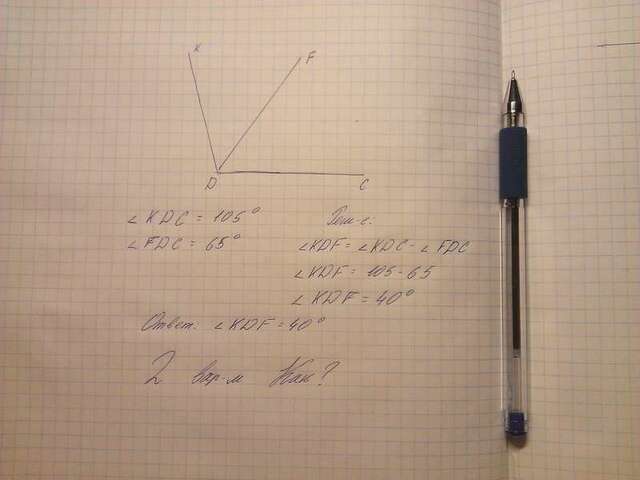 K
F
D
C
∠KDC = 105°
Реш-е:
∠FDC = 65°
∠KDF = ∠KDC - ∠FDC
∠KDF = 105 - 65
∠KDF = 40°
Ответ: ∠KDF = 40°
2 вар-м Как?